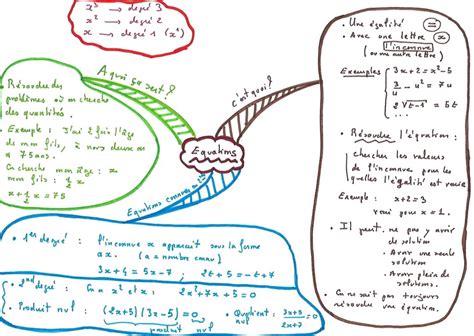 x³ → degré 3
x² → degré 2
x → degré 1 (x¹)
A quoi ça sert ?
• Résoudre des
problèmes où on cherche
des quantités.
• Exemple : J'ai 2 fois l'âge
de mon fils, à nous deux on
a 75 ans.
On cherche mon âge : x
mon fils : ½ x
x + ½ x = 75
Equations
c'est quoi ?
• Une égalité =
• Avec une lettre x
l'inconnue
(ou une autre lettre)
Exemples
3x + 2 = x² - 5
3/u - u² = 7
2√t - 1 = 5t
• Résoudre l'équation :
chercher les valeurs
de l'inconnue pour les
quelles l'égalité est vraie
Exemple : x + 2 = 3
vrai pour x = 1.
• Il peut ne pas y avoir
de solution
Avoir une seule
solution
Avoir plein de
solutions
• On ne sait pas toujours
résoudre une équation.
Equations connues
• 1er degré : l'inconnue x apparaît sous la forme
ax. (a a nombre connu)
3x + 4 = 5x - 7 ; 2t + 5 = -t + 7
• 2nd degré : On a x² et x : 2x² + 7x + 5 = 0
• Produit nul : (2x+5)(3x-5) = 0
produit nul
• Quotient nul : = 0